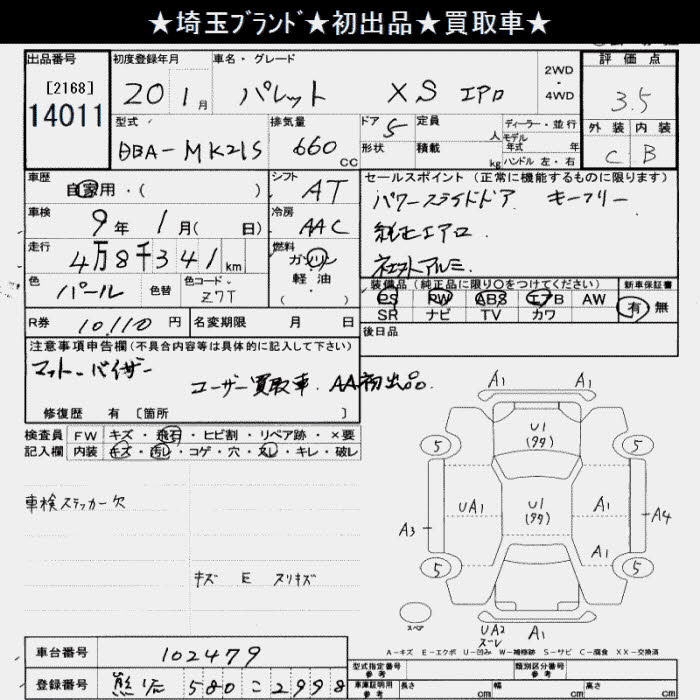 ★埼玉ﾌﾞﾗﾝﾄﾞ★初出品★買取車★
出品番号 初度登録年月 車名・グレード 2WD・4WD 評価点
[2168]
14011 20 1月 パレット XS エアロ 3.5
型式 排気量 ドア 5 定員 人 ディーラー・並行 外装 内装
モデル年式 年
DBA-MK21S 660cc 形状 積載 kg ハンドル 左・右 C B
車歴 自家用・( ) シフト AT セールスポイント(正常に機能するものに限ります)
車検 9年 1月( 日) 冷房 AAC パワースライドドア キーフリー
走行 4万8千341km 燃料 ガソリン・軽油 ( ) 純正エアロ
色 パール 色替 色コード Z7T 社外アルミ
装備品(純正品に限り○をつけてください) 新車保証書
PS PW ABS エアB AW 有・無
SR ナビ TV カワ
R券 10,110円 名変期限 月 日 後日品
注意事項申告欄(不具合内容等は具体的に記入して下さい)
マット・バイザー
ユーザー買取車、AA初出品。
修復歴 有 [箇所 ]
検査員 FW キズ・飛石・ヒビ割・リペア跡・×要
記入欄 内装 キズ・汚レ・コゲ・穴・スレ・キレ・破レ
車検ステッカー欠
キズ E スリキズ
A1 A1
U1
(99)
5 5
UA1 U1
(99) A1
A3 A4
A1
5 5
スペア UA2
ズレ A1
A-キズ E-エクボ U-凹み W-補修跡 S-サビ C-腐食 XX-交換済
車台番号 102479 型式指定番号 参考 類別区分番号 参考
登録番号 熊谷 580 こ 2998 車庫証明用 参考 長さ cm 幅 cm 高さ cm